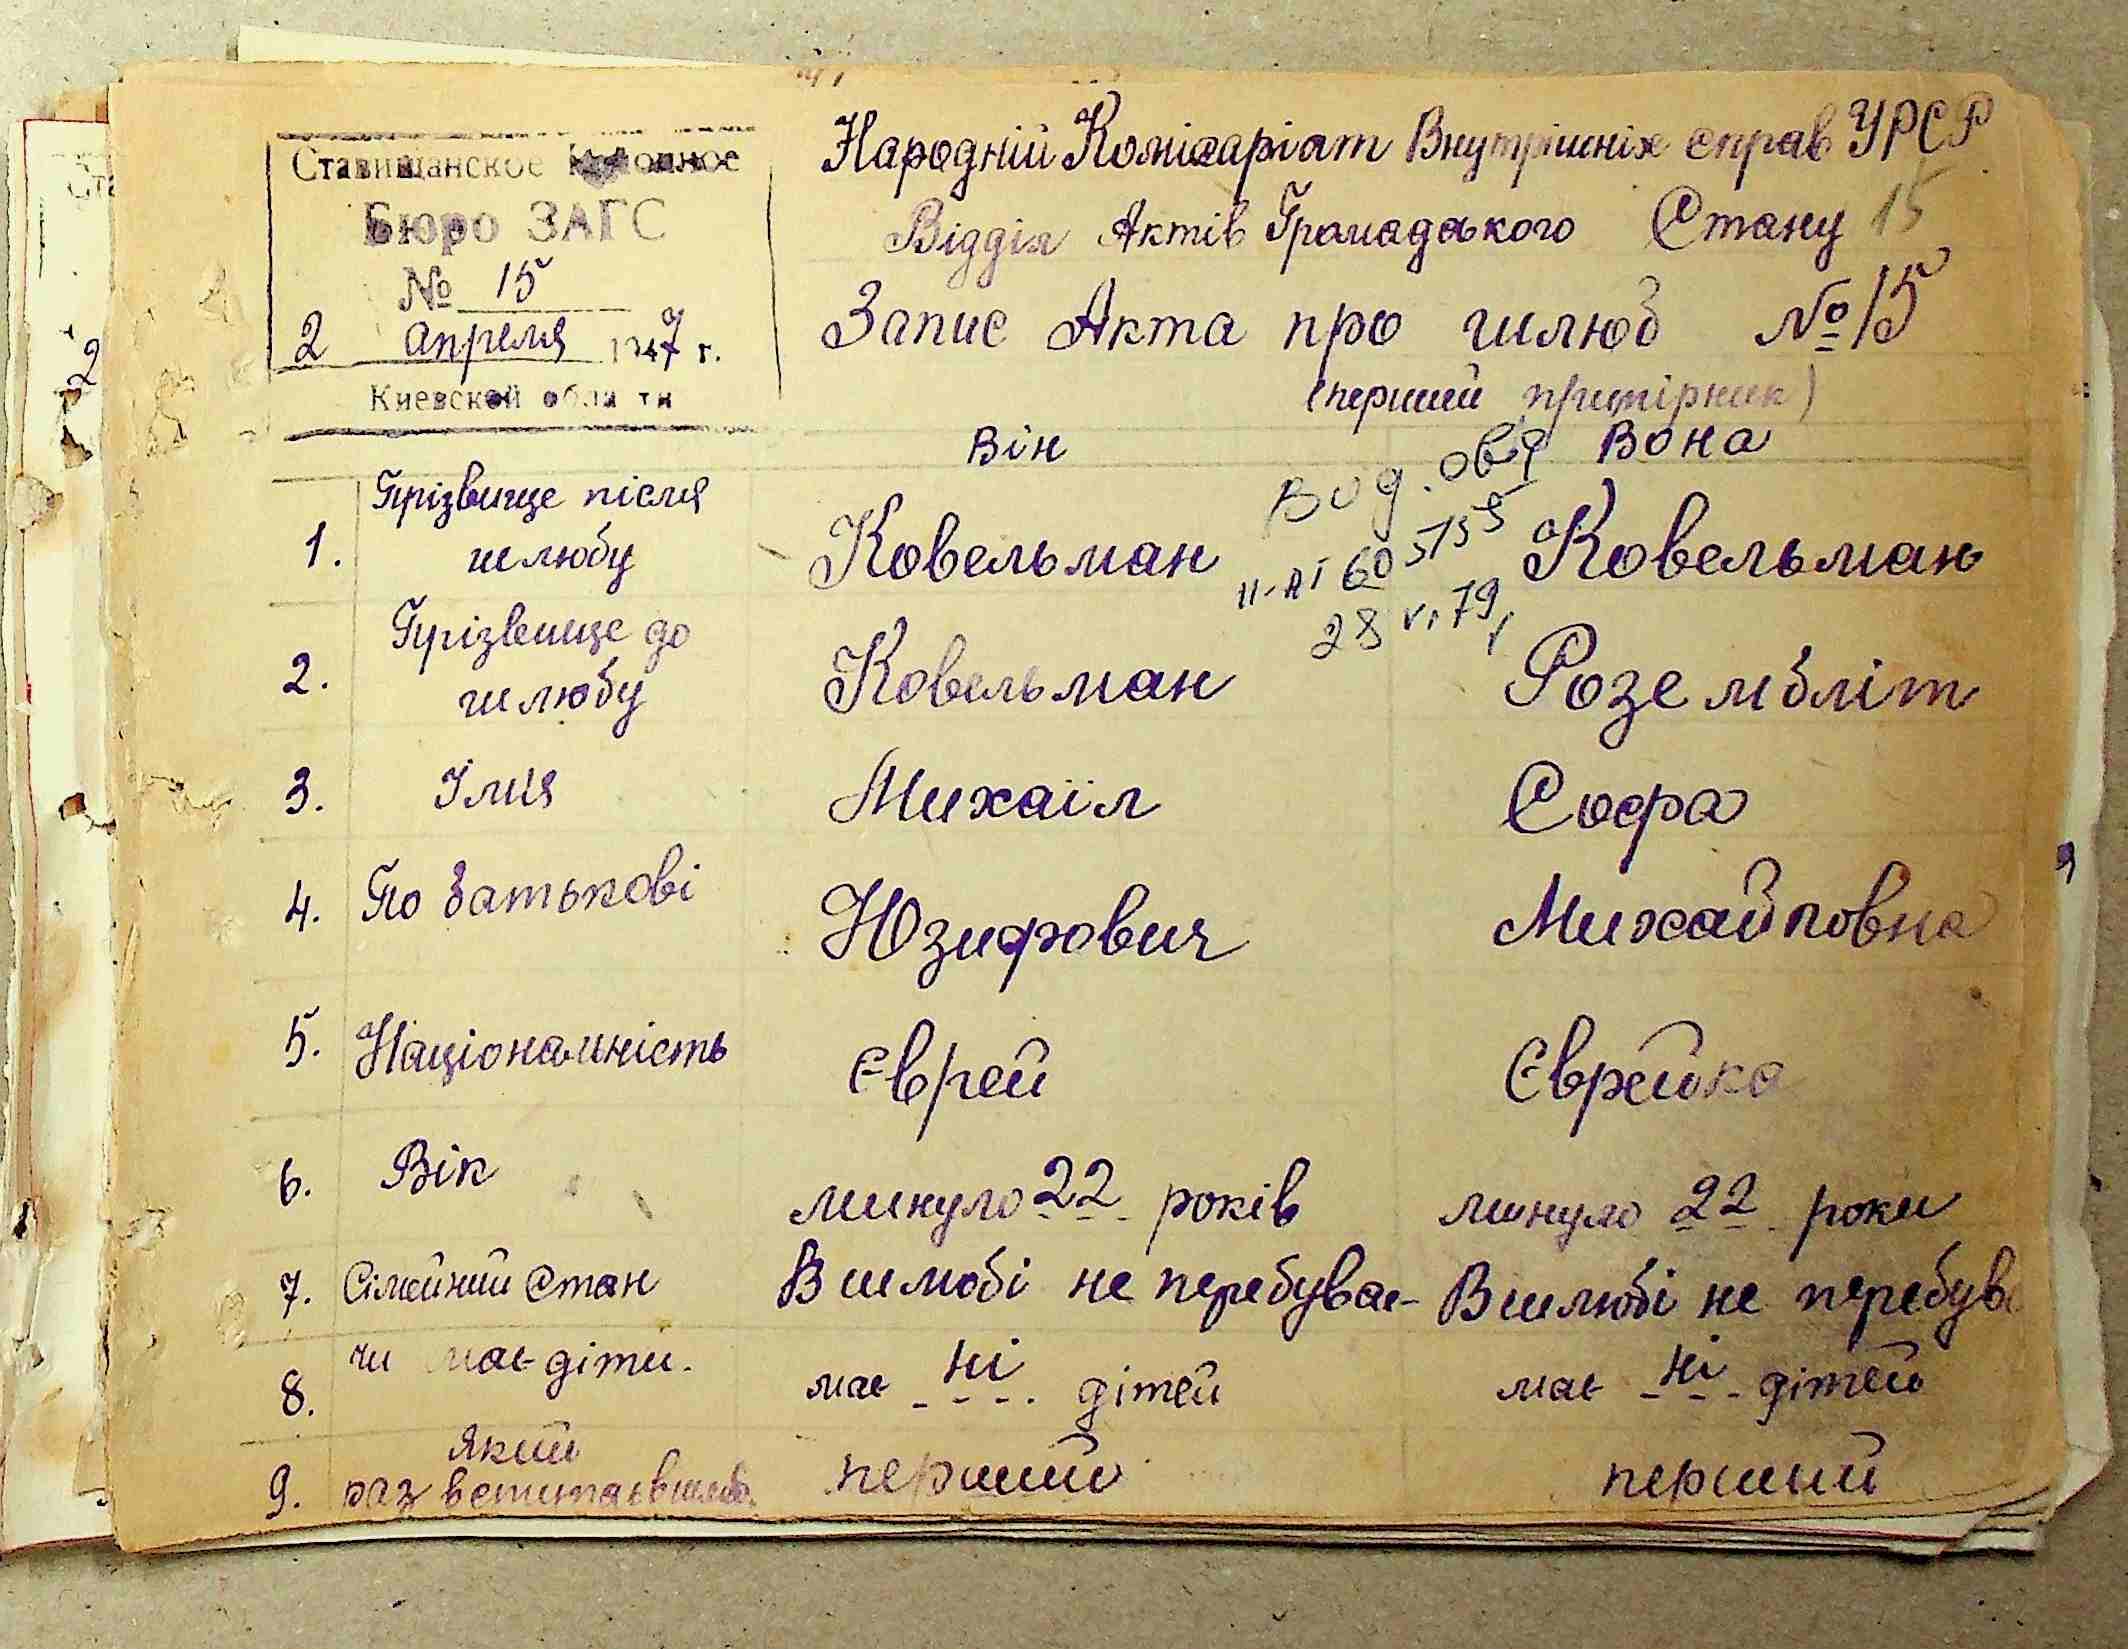 Ставищанское
Бюро ЗАГС
№ 15
2 апреля 1947 г.
Киевской области
Народній Комісаріат Внутрішніх справ УРСР
Відділ Актів Громадського Стану 15
Запис Акта про шлюб № 15
(перший примірник)
Він Вона
1. Прізвище після шлюбу Ковельман Ковельман
2. Прізвище до шлюбу Ковельман Розембліт
28 VI 79
3. Імия Михаіл Софа
4. По батькові Юзифович Михайловна
5. Національність Єврей Єврейка
6. Вік минуло 22 років минуло 22 роки
7. Сімейний стан В шлюбі не перебуває В шлюбі не перебув
8. чи має діти. має ні дітей має ні дітей
9. який раз вступає в шлюб перший перший